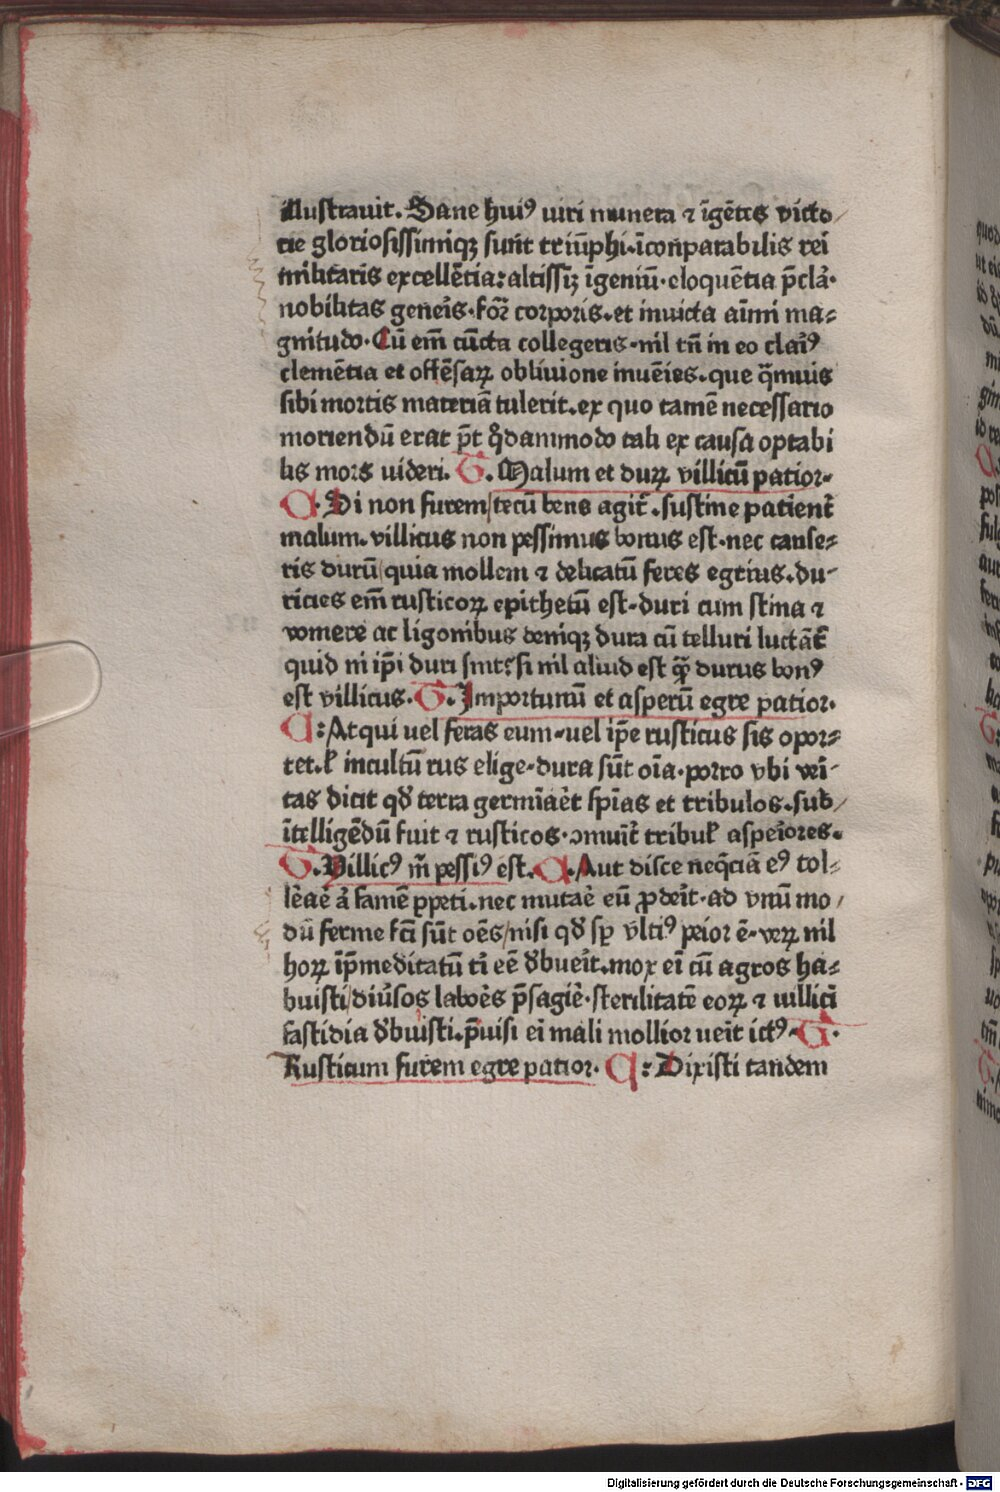 illustrauit. Sane huiꝰ uiri munera ⁊ īgētes victo/
rie gloriosissimiqꝫ sunt triūphi. īconparabilis rei
militaris excellētia: altissiꝫ īgeniū. eloquētia p̄cla᷒.
nobilitas gene᷒is. for᷒ corporis. et inuicta aīmi ma⸗
gnitudo. Cū em̄ cūcta collegeris. nil tn̄ in eo clari᷒ꝰ
clemētia et offēsaꝝ obliuione inuēies. que q̄muis
sibi mortis materiā tulerit. ex quo tamē necessario
moriendū erat p̄t q̊dammodo tali ex causa optabi
lis mors uideri. G. Malum et duꝝ villicū patior.
R. Di non furem/ tecū bene agit᷒. sustine patient᷒
malum. villicus non pessimus bonus est. nec canse⸗
ris durū/ quia mollem ⁊ delicatū feres egrius. du⸗
ricies em̄ rusticoꝝ epithetū est. duri cum stiua ⁊
vomere ac ligonibus deniqꝫ dura cū telluri luctāt᷒
quid ni ip̄i duri sint? si nil aliud est ꝙ̄ durus bonꝰ
est villicus. G. Importunū et asperū egre patior.
R: Atqui uel feras eum. uel ip̄e rusticus sis opor⸗
tet. ł incultū rus elige. dura sūt oīa. porro vbi veri᷒⸗
tas dicit qđ terra germīae᷒t spīas et tribulos. sub/
ītelligēdū fuit ⁊ rusticos. ꝯmuīt᷒ tribuł aspe᷒iores.
G. Villicꝰ m̄ pessiꝰ est. R. Aut disce neq̄ciā eꝰ tol⸗
le᷒ae᷒ a᷒ famē ꝑpeti. nec mutae᷒ eū ꝓdei᷒t. ad vnū mo/
dū ferme fc̄i sūt oēs/ nisi qđ sꝑ vlti᷒ꝰ peior ē. veꝝ nil
hoꝝ īp̄meditatū ti᷒ eē đbuei᷒t. mox ei᷒ cū agros ha⸗
buisti/ diu᷒sos laboe᷒s p̄sagie᷒. sterilitatē eoꝝ ⁊ uillici
fastidia đbuisti. p̄uisi ei᷒ mali mollior uei᷒t ictꝰ. G.
Rusticum furem egre patior. R: Dixisti tandem
Digitalisierung gefördert durch die Deutsche Forschungsgemeinschaft - DFG